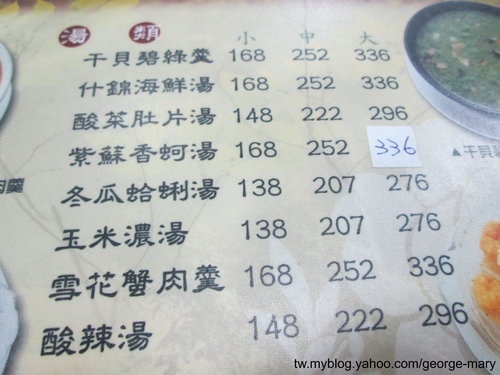 湯 類 小 中 大
干貝碧綠羹 168 252 336
什錦海鮮湯 168 252 336
酸菜肚片湯 148 222 296
紫蘇香蚵湯 168 252 336
冬瓜蛤蜊湯 138 207 276
玉米濃湯 138 207 276
雪花蟹肉羹 168 252 336
酸辣湯 148 222 296
▲干貝
肉羹
tw.myblog.yahoo.com/george-mary